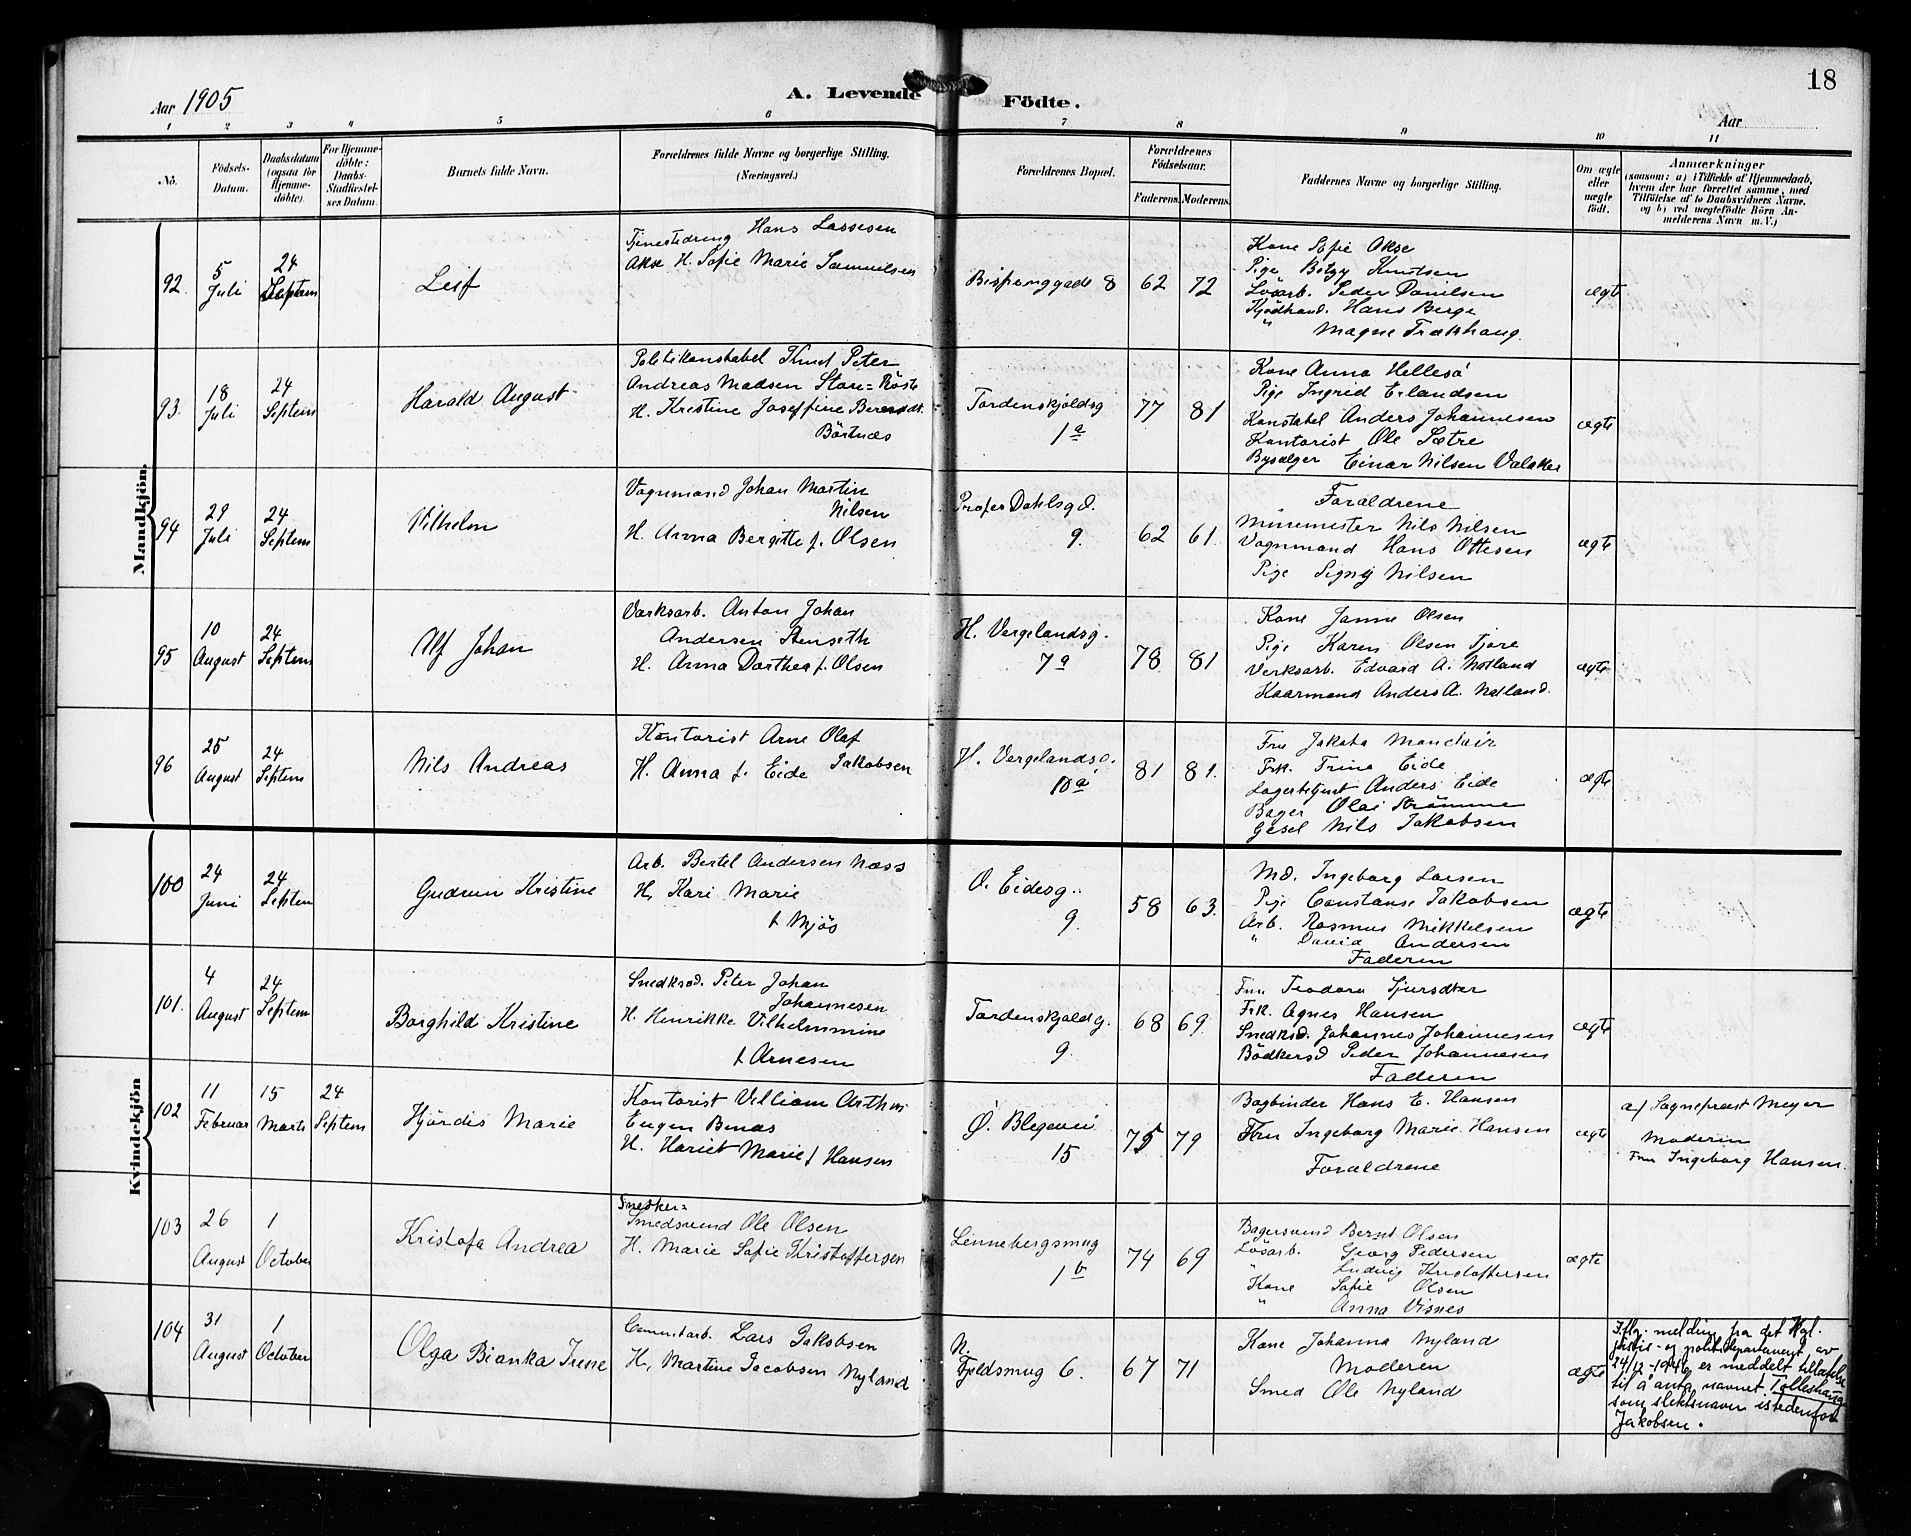 18
Aar 1905
A. Levende Födte.
Aar
1 2 3 4 5 6 7 8 9 10 11
No.
Födsels-Datum.
Daabsdatum (ogsaa for Hjemme-döbte).
For Hjemme-döbte: Daabs-Stadfæstel-ses Datum.
Barnets fulde Navn.
Forældrenes fulde Navne og borgerlige Stilling. (Næringsvei.)
Forældrenes Bopæl.
Forældrenes Födselsaar.
Faderens. Moderens.
Faddernes Navne og borgerlige Stilling.
Om ægte eller uægte födt.
Anmærkninger
(saasom: a) i Tilfælde af Hjemmedaab,
hvem der har forrettet samme, med
Tilföielse af to Daabsvidners Navne.
og b) ved uægtefödte Börn An-
melderens Navn m. V.)
Mandkjön.
92.
5 Juli
24 Septem
Leif
Tjenestedreng Hans Lassesen
Akse H. Sofie Marie Samuelsen
Bispenggade 8
62 72
Kone Sofie Akse
Pige Betzy Knutsen
Lösarb. Peder Danilsen
Kjödhand. Hans Berge
" Magne Trækhaug.
ægte
93.
18 Juli
24 Septem
Harald August
Politikonstabel Knud Peter
Andreas Madsen Store-Röste
H. Kristine Joseffine Berentdt.
Börtnæs
Tordenskjoldsg
1a
77 81
Kone Anna Hellesö
Pige Ingrid Erlandsen
Konstabel Anders Johannesen
Kontorist Ole Sætre
Bysælger Einar Nilsen Valaker
ægte
94
29 Juli
24 Septem
Vilhelm
Vognmand Johan Martin
Nilsen
H. Anna Bergitte f. Olsen
Profes Dahlsgd.
9.
62 61.
Forældrene
Minemester Nils Nilsen
Vognmand Hans Ottesen
Pige Signy Nilsen
ægte
95
10 August
24 Septem
Alf Johan
Værksarb. Anton Johan
Andersen Stenseth
H. Anna Dorthea f. Olsen
H. Vergelandsg.
7a
78 81
Kone Janne Olsen
Pige Karen Olsen Tjore
Verksarb. Edvard A. Natland
Haarmand Anders A. Natland.
ægte
96
25 August
24 Septem
Nils Andreas
Kontorist Arne Olaf
Jakobsen
H. Anna f. Eide
H. Vergelandsg.
10a
81 81.
Fru Jakoba Mondair
Frk. Trine Eide
Lagerbetjent Anders Eide
Bager Olai Strömme
Gesel Nils Jakobsen
ægte
Kvindekjön
100
24 Juni
24 Septem
Gudrun Kristine
Arb. Bertel Andersen Næss
H. Kari Marie
f Mjös
O. Eidesg.
9.
58 63.
Md. Ingeborg Larsen
Pige Constanse Jakobsen
Arb. Rasmus Mikkelsen
" David Andersen
Faderen
ægte
101.
4 August
24 Septem
Borghild Kristine
Snedksvd. Peter Johan
Johannesen
H. Henrikke Vilhelmmine
f Arnesen
Tordenskjoldg.
9.
68 69.
Fru Teodora Sjursdter
Frk. Agnes Hansen
Snedksd. Johannes Johannesen
Bödkersd Peder Johannesen
Faderen
ægte
102
11 Februar
15 Marts
24 Septem
Hjördis Marie
Kontorist Villiam Arthur
Eugen Benas
H. Hariet Marie f Hansen
Ø. Blegevei
15
75 79
Bogbinder Hans E. Hansen
Fru Ingeborg Marie Hansen
Forældrene
ægte
af Sognepræst Meyer
Moderin
Fru Ingeborg Hansen.
103
26 August
1 October
Kristofa Andrea
Snedker=
Smedsvend Ole Olsen
H. Marie Sofie Kristoffersen
Linnebergsmug
1b
74 69
Bagersvend Bernt Olsen
Lösarb. Georg Pedersen
" Ludvig Kristoffersen
Kone Sofie Olsen
" Anna Visnes
ægte
104
31 August
1 October
Olga Bianka Irene
Cementarb. Lars Jakobsen
H. Martine Jacobsen Nyland
N.
Fjeldsmug 6.
67 71
Kone Johanna Nyland
Moderen
Smed Ole Nyland
ægte
Iflg. melding fra det Kgl.
justis- og politidepartement av
24/12-1946 er meddelt tillatelse
til å anta navnet Tolleshaug
som slektsnavn istedenfor
Jakobsen.